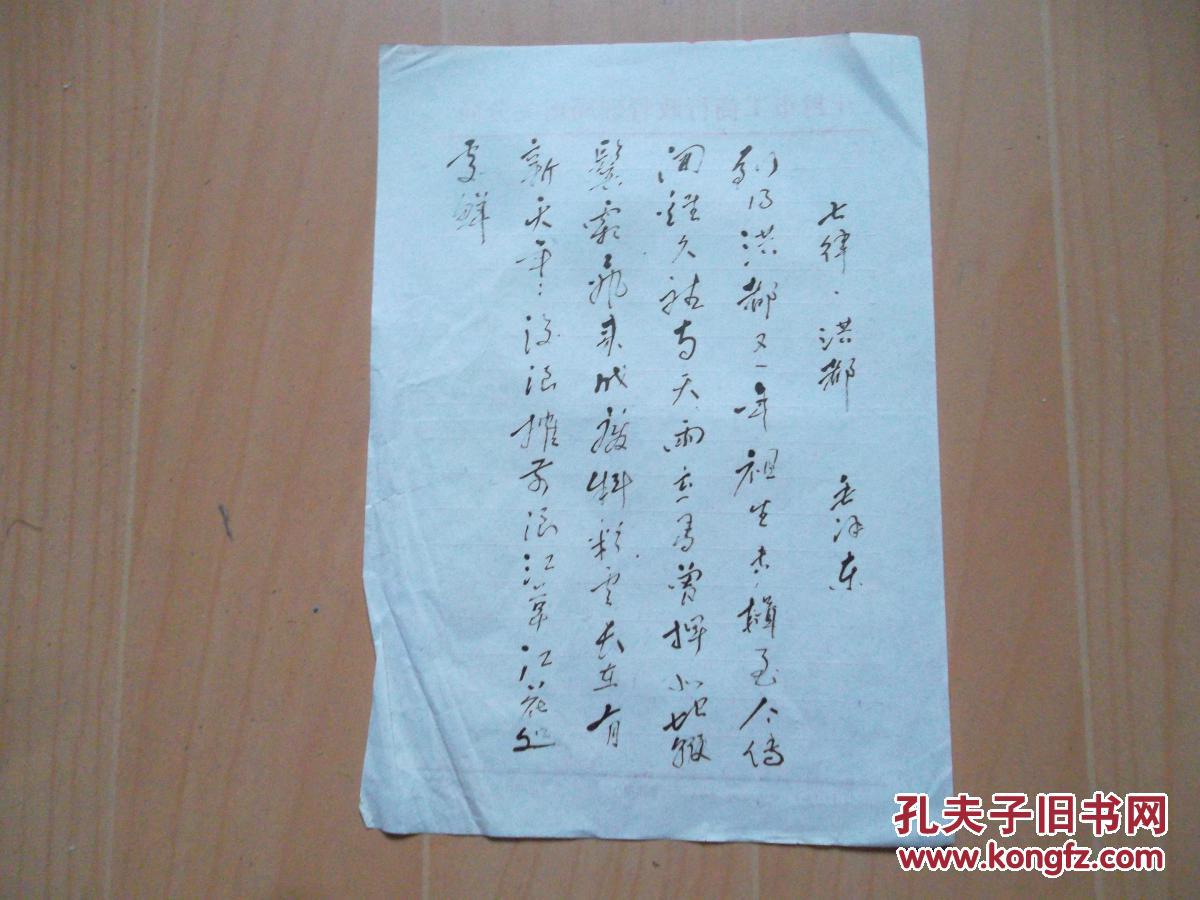 七律·洪都 毛泽东
到得洪都又一年祖生击楫至今传
闻鸡久听南天雨立马曾挥北地鞭
鬓雪飞来成废料彩云长在有
新天年々后浪推前浪江草江花处
处鲜
孔夫子旧书网
www.kongfz.com